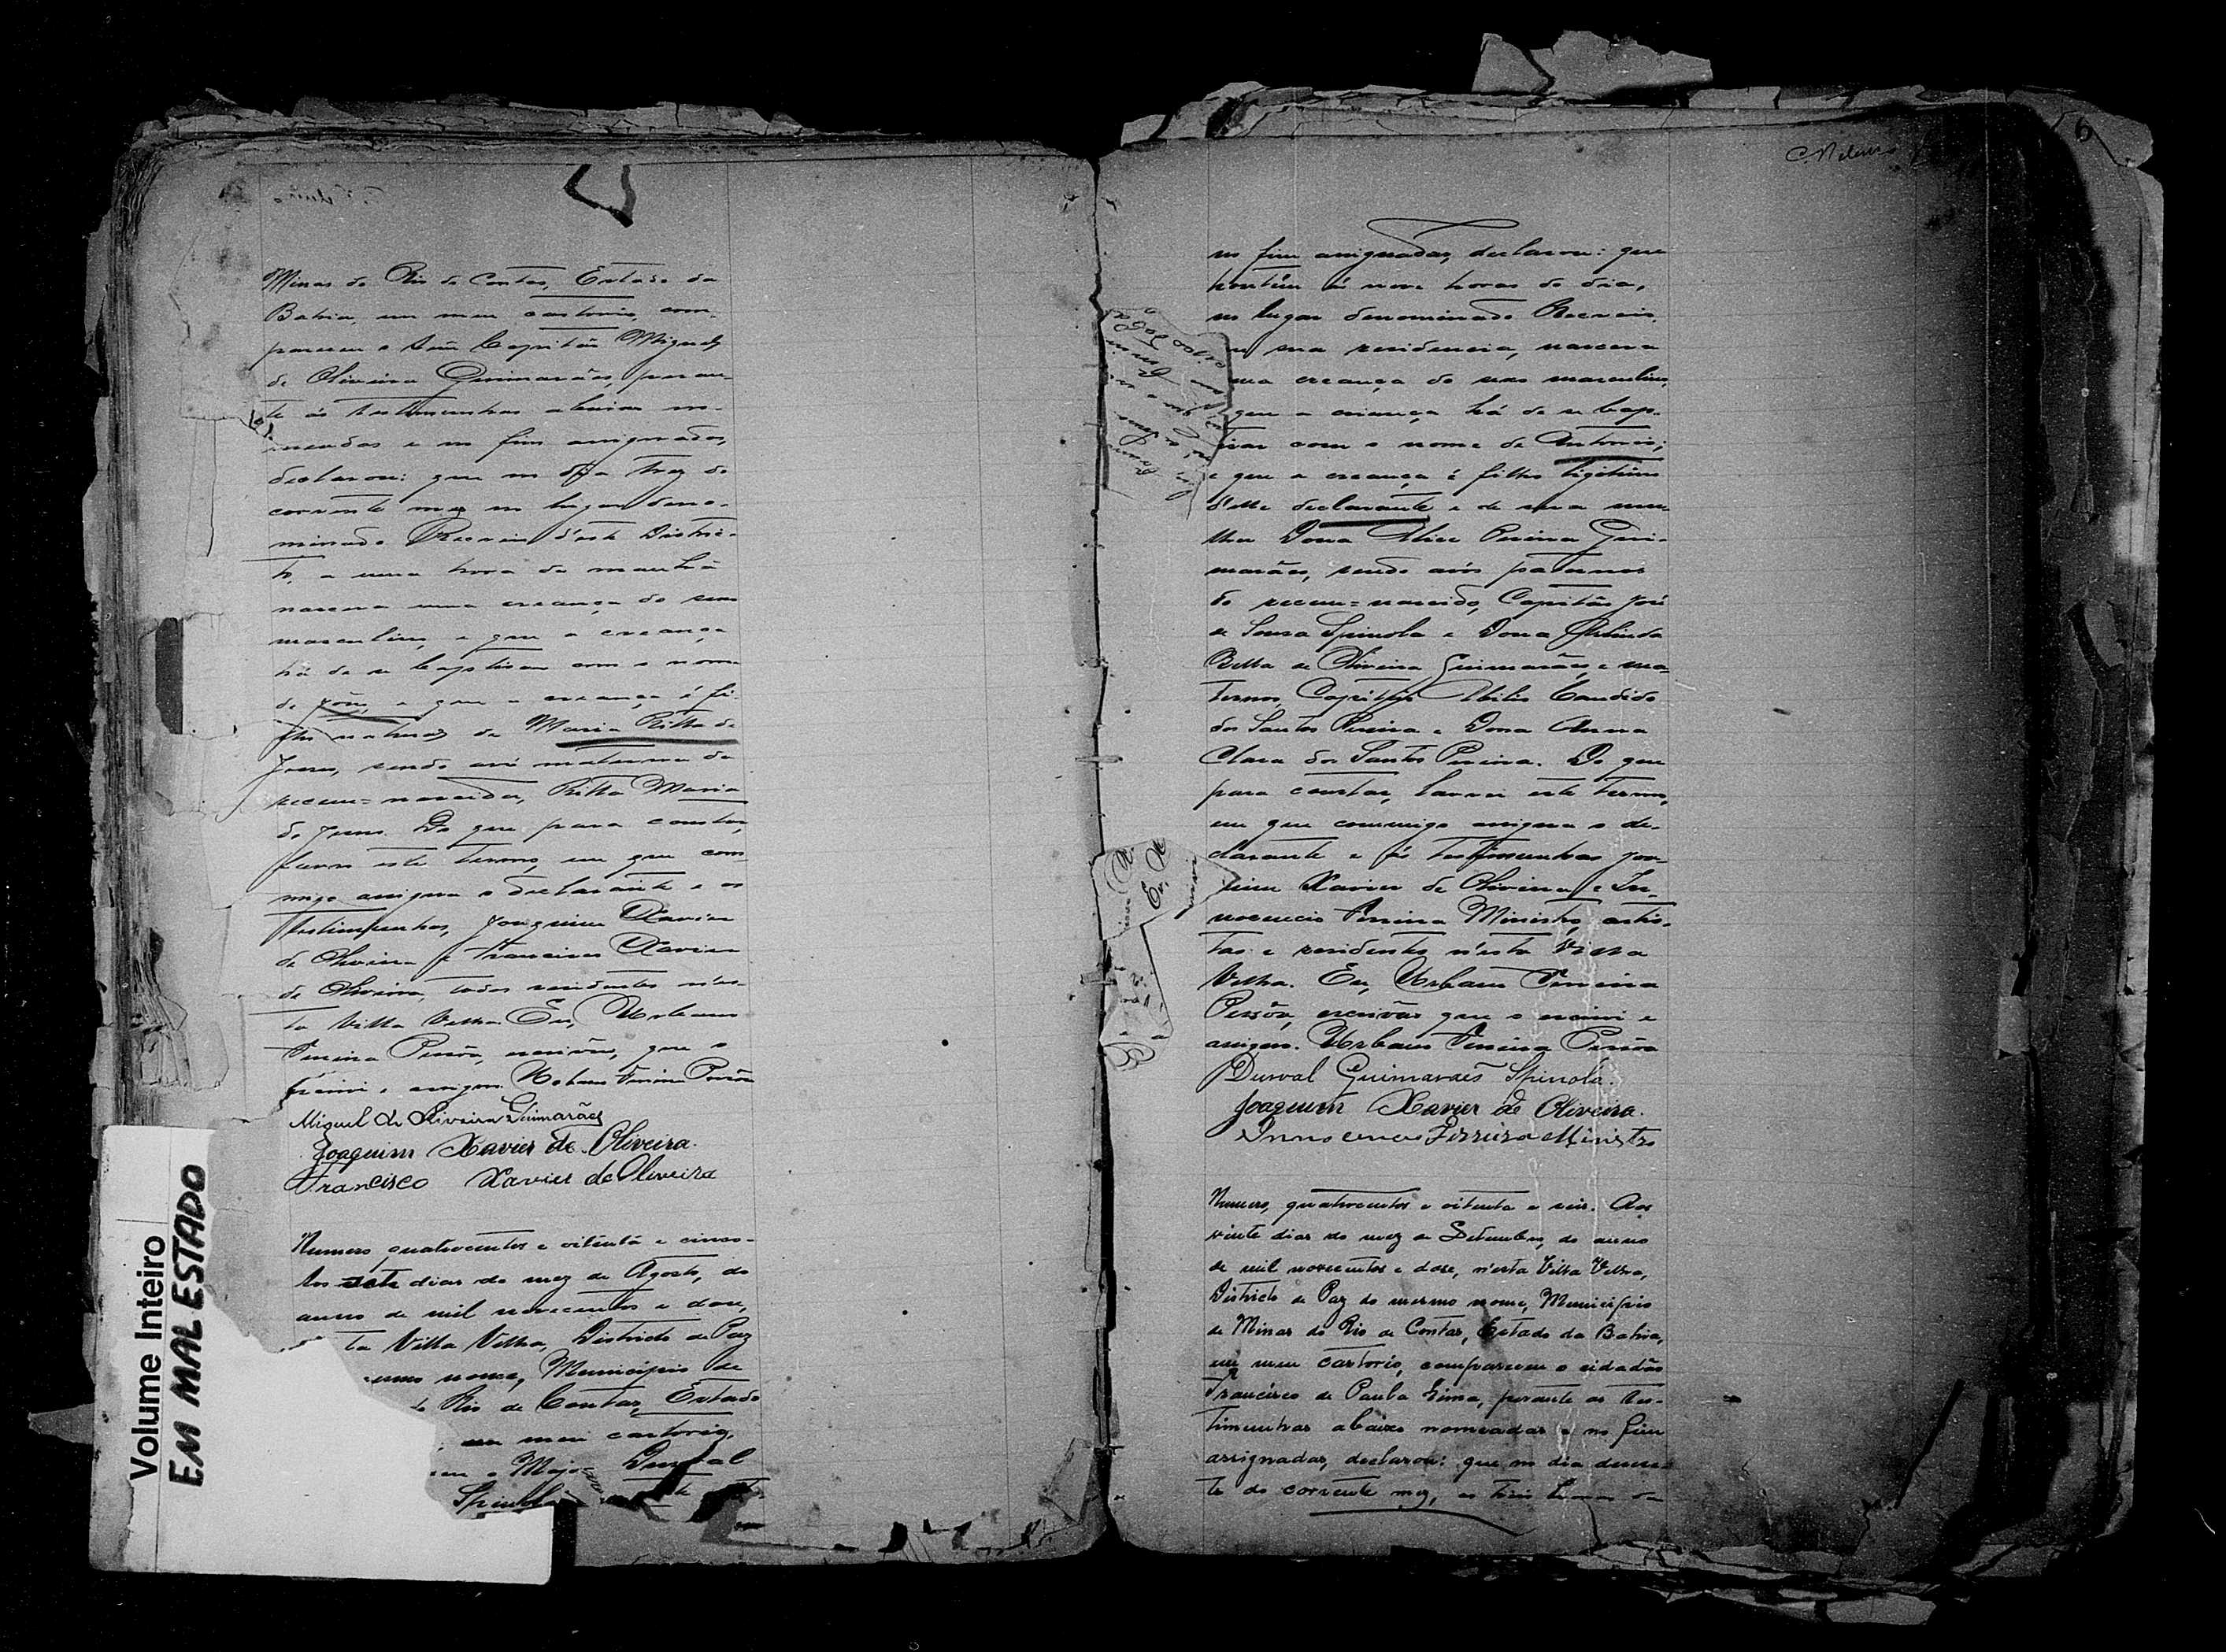 Minas do Rio de Contas, Estado da
Bahia, em meu cartorio, com-
pareceu o Capitão Miguel
de Oliveira Guimarães, peran-
te as testemunhas abaixo no-
meadas e no fim assignados,
declarou: que no dia trez do
corrente mez no lugar deno-
minado Recreio d'este Distric-
to, a uma hora da manhã
nascera uma creança do sexo
masculino, e que a creança
há de se baptisar com o nome
de João, e que a creança é fi-
lho natural de Maria Ritta de
Jesus, sendo avó materna do
recem=nascido, Ritta Maria
de Jesus. Do que para constar,
lavro este termo, em que com-
migo assigna o declarante e as
testemunhas, Joaquim Xavier
de Oliveira e Francisco Xavier
de Oliveira, todos residentes nes-
ta Villa Velha. Eu, Urbano
Ferreira Pessôa, escrivão, que o
escrivi e assigno. Urbano Ferreira Pessôa
Miguel de Oliveira Guimarães
Joaquim Xavier de Oliveira.
Francisco Xavier de Oliveira
Numero, quatrocentos e oitenta e cinco-
Aos sete dias do mez de Agosto, do
anno de mil novecentos e doze,
ta Villa Velha, Districto de Paz
esmo nome, Municipio de
do Rio de Contas, Estado
em meu cartorio,
eu o Major Durval
Spinola
Volume Inteiro
EM MAL ESTADO
6
no fim assignadas, declarou: que
hontêm ás nove horas do dia,
no lugar denominado Recreio,
em sua residencia, nascera
uma creança do sexo masculino,
que a criança há de se bap-
tisar com o nome de Antonio;
e que a creança é filho ligitimo
d'elle declarante e de sua mu-
lher Dona Alice Pereira Gui-
marães, sendo avós paternos
do recem=nascido, Capitão José
de Sousa Spinola e Dona Arlinda
Bella de Oliveira Guimarães e ma-
ternos, Capitão Abilio Candido
dos Santos Pereira e Dona Anna
Clara dos Santos Pereira. Do que
para constar, lavrei este termo,
em que commigo assigna o de-
clarante e as testemunhas Joa-
quim Xavier de Oliveira e In-
nocencio Ferreira Ministro, artis-
tas e residentes n'esta Villa
Velha. Eu, Urbano Ferreira
Pessôa, escrivão que o escrivi e
assigno. Urbano Ferreira Pessôa
Durval Guimarães Spinola.
Joaquim Xavier de Oliveira.
Innocencio Ferreira Ministro
Numero, quatrocentos e oitenta e seis. Aos
vinte dias do mez de Setembro, do anno
de mil novecentos e doze, n'esta Villa Velha,
Districto de Paz do mesmo nome, Municipio
de Minas do Rio de Contas, Estado da Bahia,
em meu cartorio, compareceu o cidadão
Francisco de Paula Lima, perante as tes-
timunhas abaixo nomeadas e no fim
assignadas, declarou: que no dia deses-
te do corrente mez, as tres horas da